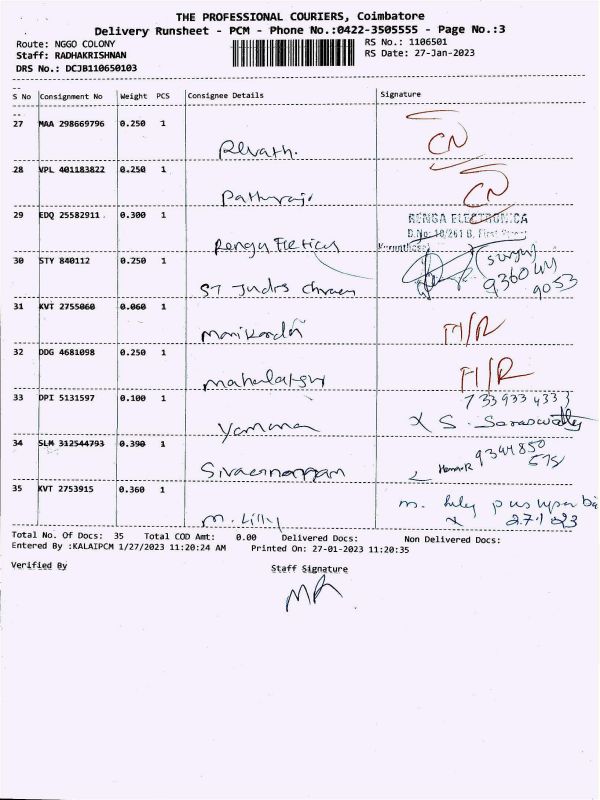 THE PROFESSIONAL COURIERS, Coimbatore
Delivery Runsheet - PCM - Phone No.:0422-3505555 - Page No.:3
Route: NGGO COLONY
RS No.: 1106501
Staff: RADHAKRISHNAN
RS Date: 27-Jan-2023
DRS No.: DCJB110650103
S No Consignment No Weight PCS Consignee Details Signature
27 MAA 298669796 0.250 1 Revath. CN
28 VPL 401183822 0.250 1 Pathuraj CN
29 EDQ 25582911 0.300 1 Renga
RENGA ELECTRONICA
D.No: 10/261 B, First Street
30 STY 840112 0.250 1 ST Judes
9360
9053
31 KVT 2755060 0.060 1 Manikanda H/R
32 DDG 4681098 0.250 1 Mahalakshmi H/R
33 DPI 5131597 0.100 1 Yamuna
7339334333
X S. Saraswathy
34 SLM 312544793 0.390 1
9344850
35 KVT 2753915 0.360 1 M. Lilly
m. lily puspa
x 27.1.023
Total No. Of Docs: 35 Total COD Amt: 0.00 Delivered Docs: Non Delivered Docs:
Entered By :KALAIPCM 1/27/2023 11:20:24 AM Printed On: 27-01-2023 11:20:35
Verified By Staff Signature